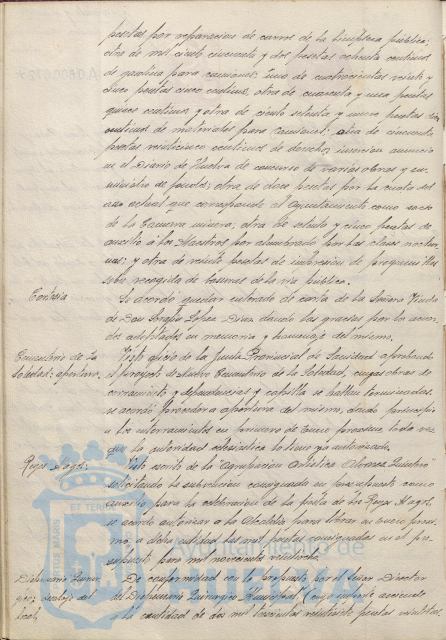 pesetas por reparacion de carros de la limpieza publica;
otra de mil ciento cincuenta y dos pesetas ochenta centimos
de gasolina para camiones; una de cuatrocientas veinte y
cinco pesetas cinco centimos, otra de cuarenta y una pesetas
quince centimos y otra de ciento setenta y nueve pesetas
centimos de materiales para camiones; otra de cincuenta
pesetas veinticinco centimos de derechos insercion anuncio
en el Diario de Huelva de concurso de varias obras y su-
ministro de farolas; otra de doce pesetas por la cuota del
año actual que corresponde al Ayuntamiento como socio
de la Camara minera; otra de setenta y cinco pesetas de
auxilio á los Maestros por alumbrado por las clases noctur-
nas; y otra de veinte pesetas de impresion de
sobre recogida de basuras de la via publica.
Cortesia
Se acordó quedar enterado de carta de la Señora Viuda
de Don Sergio Lopez Diaz dando las gracias por los acuer-
dos adoptados en memoria y homenaje del mismo.
Cementerio de la
Soledad: apertura.
Visto oficio de la Junta Provincial de Sanidad aprobando
el proyecto de Nuevo Cementerio de la Soledad, cuyas obras de
cerramiento y dependencias y capilla se hallan terminadas,
se acordó proceder a apertura del mismo, dando principio
a los enterramientos en primero de Enero proximo, toda vez
que la autoridad eclesiastica lo tiene ya autorizado.
Reyes Magos.
Visto escrito de la "Agrupacion Artistica Alvarez Quintero"
solicitando la subvencion consignada en presupuesto como
auxilio para la celebracion de la fiesta de los Reyes Magos,
se acordó autorizar a la Alcaldia para librar en enero proxi-
mo a dicha entidad las mil pesetas consignadas en el pre-
supuesto para mil novecientos
Dispensario Quirur-
gico:
local.
De conformidad con lo propuesto por el Señor Director
del Dispensario Quirurgico Municipal, cuyo importe asciende
a la cantidad de dos mil trescientas veintisiete pesetas
ET TERRAE
PORTUS MARIS
Ayuntamiento de